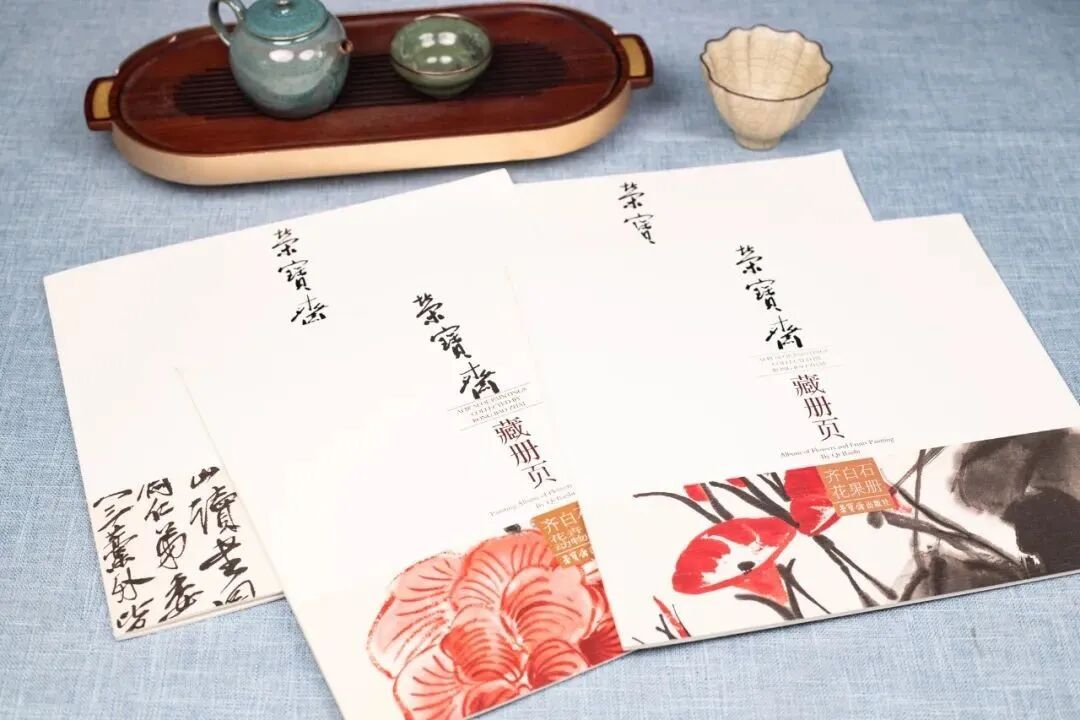 荣寶齋
山讀
荣寶齋
ALBUM OF PAINTINGS
COLLECTED BY
RONG BAO ZHAI
藏册页
Painting Album of Flowers
By Qi Baishi
齐白
花卉
荣寶
荣寶齋
ALBUM OF PAINTINGS
COLLECTED BY
RONG BAO ZHAI
藏册页
Album of Flowers and Fruits Painting
By Qi Baishi
齐白石
花果册
荣寶齋出版社